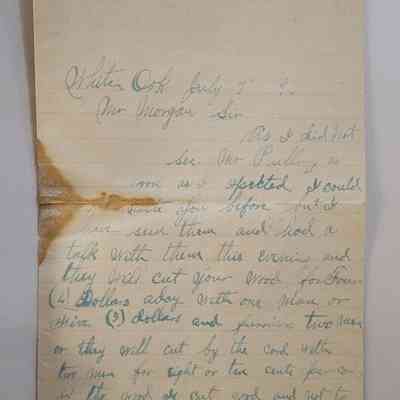 White Oak July 7
Mr Morgan Sir
As I did not
see Mr Pulling as
soon as I expected I could
you before but I
have seen them and had a
talk with them this evening and
they will cut your wood for Four
(4) Dollars a day with one man or
(9) dollars and furnish two men
or they will cut by the cord with
two men for eight or ten cents per
the wood is cut good and not to